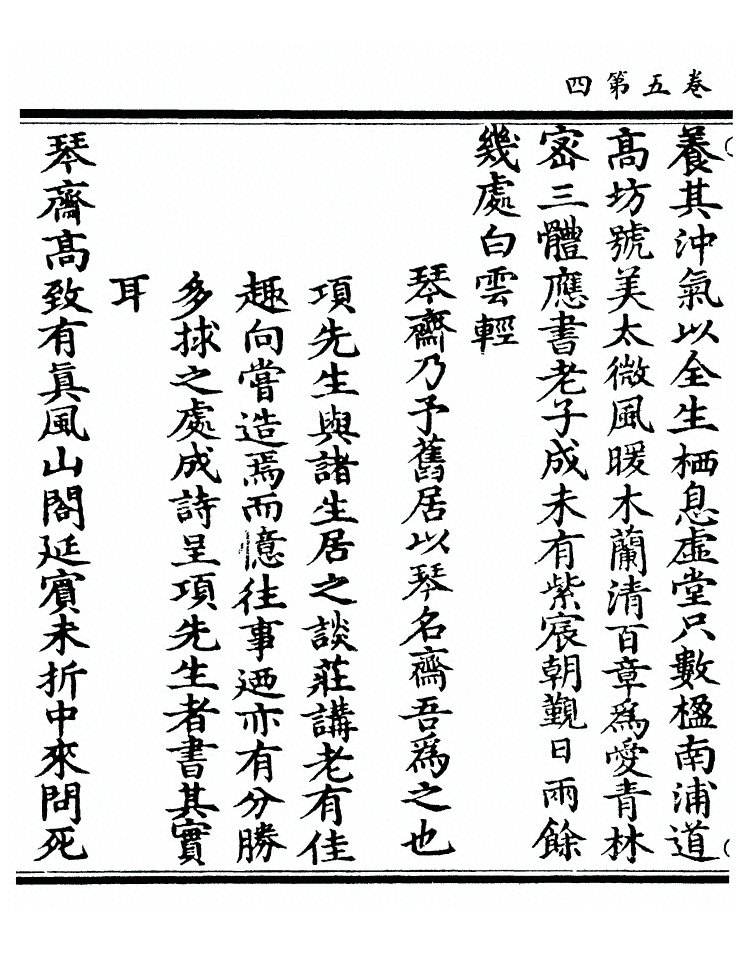 卷五第四
養其沖氣以全生栖息虛堂只數楹南浦道
髙坊號美太微風暖木蘭清百章爲愛青林
宻三體應書老子成未有紫宸朝覲日雨餘
幾處白雲輕
琴齋乃予舊居以琴名齋吾爲之也
項先生與諸生居之談莊講老有佳
趣向嘗造焉而憶往事迺亦有分勝
多捄之處成詩呈項先生者書其實
耳
琴齋髙致有眞風山閣延賓未折中來問死